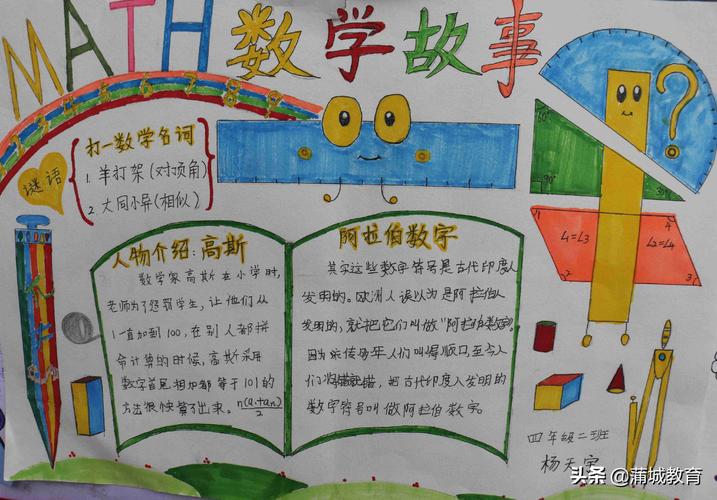 MATH数学故事
1 2 3 4 5 6 7 8 9
谜语
打一数学名词
1. 羊打架(对顶角)
2. 大同小异(相似)
人物介绍:高斯
数学家高斯在小学时,
老师为了惩罚学生,让他们从
1一直加到100,在别人都拼
命计算的时候,高斯采用
数字首尾相加都等于101的
方法很快算了出来。n(a₁+an)/2
阿拉伯数字
其实这些数字符号是古代印度人
发明的。欧洲人误以为是阿拉伯人
发明的,就把它们叫做“阿拉伯数字”。
因为流传多年人们叫得顺口,至今人
们将错就错,把古代印度人发明的
数字符号叫做阿拉伯数字。
?
60°
90°
30°
1
4
∠1=∠3
∠2=∠4
2
3
四年级二班
杨天宇
头条 @蒲城教育